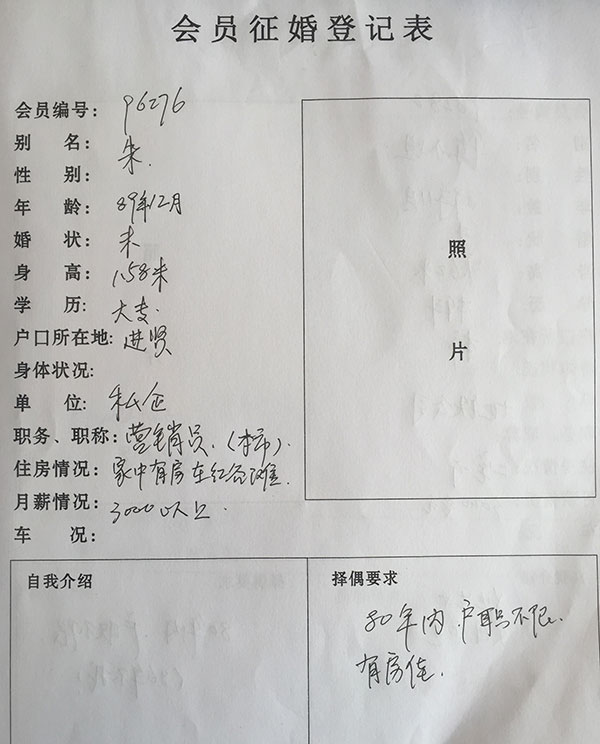 会员征婚登记表
会员编号: 96276
别 名: 朱.
性 别:
年 龄: 89年12月
婚 状: 未
身 高: 1.58米
学 历: 大专.
户口所在地: 进贤
身体状况:
单 位: 私企
职务、职称: 营销员.(本市).
住房情况: 家中有房在红谷滩.
月薪情况: 3000以上.
车 况:
照
片
自我介绍
择偶要求
80年内 户职不限.
有房住.